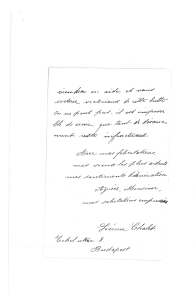 viendra en aide et nous
sortirons victorieux de cette lutte
On ne peut pas, il est impossi-
ble de croire que tant de dévoue-
ments reste infructueux.
Avec mes félicitations,
mes vœux les plus ardents
mes sentiments d'admiration
Agréez, Monsieur,
mes salutations empressées
Chalot
8.
Budapest